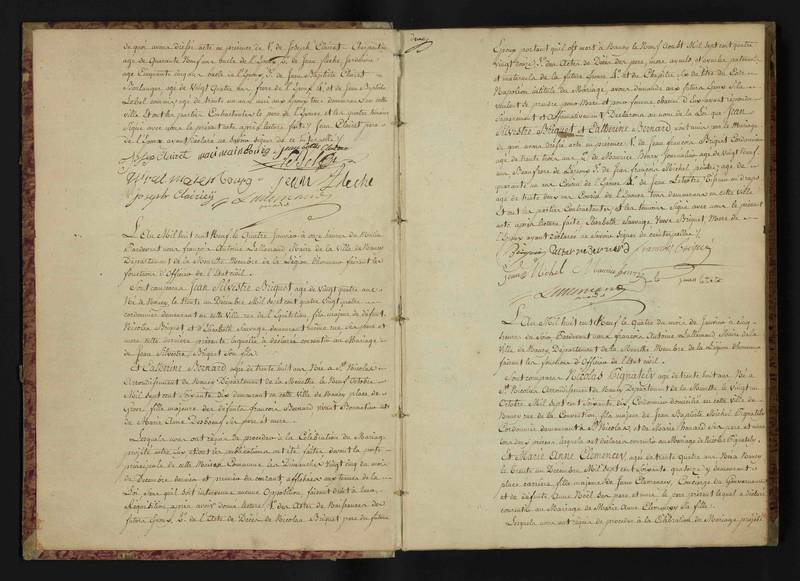 de quoi avons dressé acte en présence de 1°. de Joseph Clairet Charpentier
age de Quarante Neuf ans oncle de l'Epoux 2°. de Jean
age Cinquante cinq ans 3°. de Jean Baptiste Clairet
Boulanger age de Vingt Quatre ans frere de l'Epoux 4°. et de Jean Baptiste
age de trente un ans ami aux Epoux tous demeurans en cette
ville Et ont les parties Contractantes le pere de l'Epouse et les quatre témoins
Signé avec nous le présent acte après lecture faite / Jean Clairet pere
de l'Epoux ayant déclaré ne savoir signer de ce interpellé /
Joseph Clairet
Lallemand
L'An Mil huit cent Neuf le Quatre Janvier à onze heures du Matin
Pardevant nous françois Antoine Lallemand Maire de la Ville de Nancy
Département de la Meurthe Membre de la Légion d'honneur faisant les
fonctions d'Officier de l'Etat civil.
Sont comparus Jean Silvestre Briquet age de Vingt quatre ans
Né à Nancy, le trente un Décembre Mil sept cent Vingt quatre
cordonnier demeurant en cette Ville rue de l'Equitation, fils majeur de défunt
Nicolas Briquet et d'Elisabeth Sauvage demeurant même rue Ses pere et
mere cette derniere présente laquelle a déclaré consentir au Mariage
de Jean Silvestre Briquet Son fils.
Et Catherine Bernard age de trente huit ans Née à St. Nicolas
Arrondissement de Nancy Département de la Meurthe le Neuf Octobre
Mil sept cent Soixante dix demeurant en cette Ville place de
Greve, fille majeure des défunts francois Bernard vivant Bonnetier et
de Marie Anne Ses pere et mere.
Lesquels nous ont requis de procéder à la Célébration du Mariage
projetté entre eux et dont les publications ont été faites devant la porte
principale de cette Maison Commune les Dimanches Vingt cinq du mois
de Décembre dernier et premier du courant, affichées aux termes de la
Loi, Sans qu'il soit intervenu aucune Opposition, faisant droit à leur
Réquisition, après avoir donné lecture 1°. des Actes de Naissances des
futurs Epoux, 2°. de l'Acte de Décès de Nicolas Briquet pere du futur
Epoux portant qu'il est mort à Nancy le Neuf Août Mil sept cent quatre
Vingt onze, 3°. des Actes de Décès des pere, mere ayeuls et ayeules paternels
et maternels de la future Epouse 4°. et du Chapitre Six du titre du Code
Napoléon intitulé du Mariage, avons demandé aux futurs Epoux s'ils
veulent se prendre pour Mari et pour femme chacun d'eux ayant répondu
Séparément et Affirmativement Déclarons au nom de la Loi que Jean
Silvestre Briquet et Catherine Bernard sont unis par le Mariage
de quoi avons dressé acte en présence 1°. de Jean françois Briquet Cordonnier
age de trente trois ans, 2°. de Maurice Journalier age de Vingt Neuf
ans 3°. de Jean françois Michel age de
quarante un ans 4°. de Jean
age de trente deux ans Cousin de l'Epoux tous demeurans en cette Ville
Et ont les parties Contractantes, et les témoins Signé avec nous le présent
acte après lecture faite Elisabeth Sauvage Veuve Briquet Mere de
l'Epoux ayant déclaré ne savoir Signer de ce interpellée /
Briquet Catherine Bernard francois Briquet
Lallemand
L'An Mil huit cent Neuf le quatre du mois de Janvier à cinq
heures du Soir Pardevant nous françois Antoine Lallemand Maire de la
Ville de Nancy Département de la Meurthe Membre de la Légion d'honneur
faisant les fonctions d'Officier de l'Etat civil.
Sont comparus Nicolas Pignately age de trente huit ans Né à
St. Nicolas Arrondissement de Nancy Département de la Meurthe le Vingt un
Octobre Mil sept cent Soixante dix Cordonnier domicilié en cette Ville de
Nancy rue de la Convention, fils majeur de Jean Baptiste Michel Pignately
Cordonnier demeurant à St. Nicolas et de Marie Ses pere et mere
tous deux présens lesquels ont déclaré consentir au Mariage de Nicolas Pignately.
Et Marie Anne Clemencey agée de trente quatre ans Née à Nancy
le trente un Décembre Mil sept cent Soixante quatorze y demeurant
place carriere, fille majeure de Jean Clemencey, Concierge du Gouvernement
et de défunte Anne Noël Ses pere et mere, le pere présent lequel a déclaré
consentir au Mariage de Marie Anne Clemencey Sa fille.
Lesquels nous ont requis de procéder à la Célébration du Mariage projetté